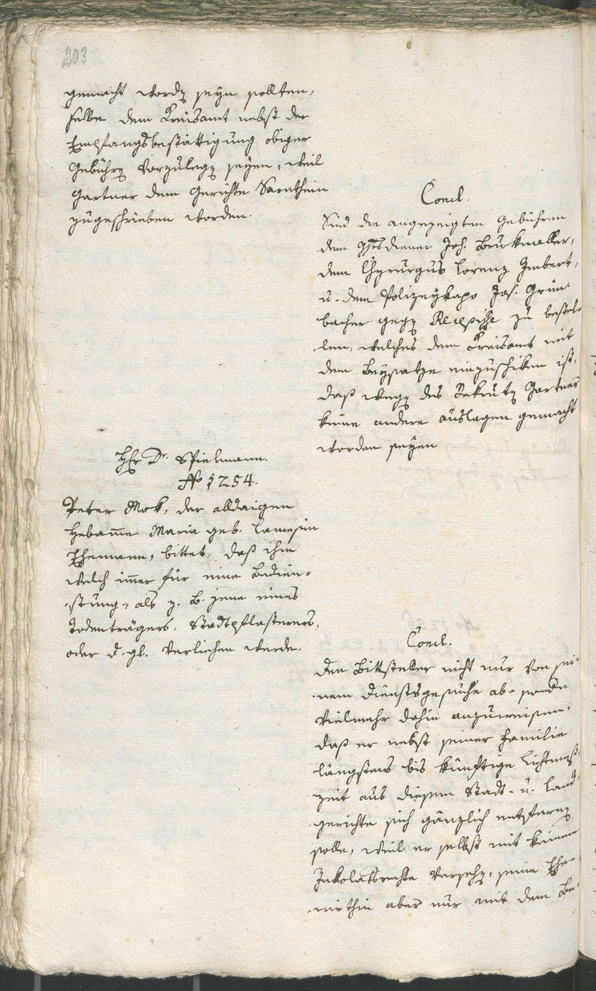 203
gemacht word seyn sollten,
selbe dem Kreisamt nebst der
Empfangsbestättigung obiger
Gebühr vorzulegen seyen, weil
Gartner dem Gerichte Sarnthein
zugeschrieben worden.
Concl.
Sind die angezeigten Gebühren
dem Gerichtsdiener Joh. Bruckmoller,
dem Chyrurgus Lorenz Imbert,
u. dem Polizeykapo Jos. Grun-
bacher gegen Recepisse zu bestel-
len, welches dem Kreisamt mit
dem Beysatze einzuschiken ist,
daß wegen des Rekruten Gartner
keine andere Auslagen gemacht
worden seyen
Hr Dr. Spielmann.
No 1254.
Peter Mok, der alldaigen
Hebamme Maria geb. Lamesin
Ehemann, bittet, daß ihm
welch immer für eine Bedien-
stung, als z. B. jene eines
Todenträgers, Stadtpflasterers,
oder d. gl. verliehen werde.
Concl.
Den Bittsteller nicht nur von sei-
nem Dienstsgesuche ab- sondern
vielmehr dahin anzuweisen,
daß er nebst seiner Familie
längstens bis künftige Lichtmess-
zeit aus diesem Stadt- u. Land-
gerichte sich gänzlich entfernen
solle, weil er selbst mit keinem
Inkolatsrechte versehen, seine Ehe-
wirthin aber nur mit dem Be-